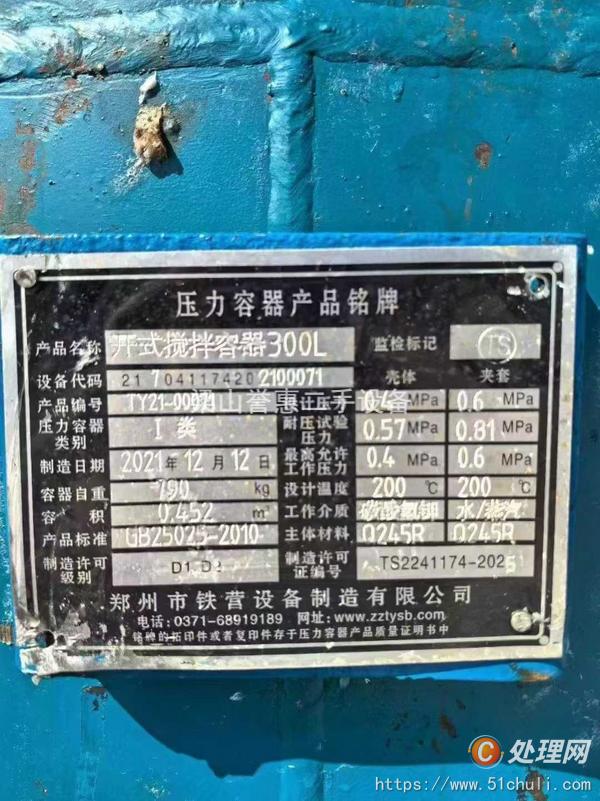 压力容器产品铭牌
产品名称 开式搅拌容器300L 监检标记 TS
设备代码 217041174202100071 壳体 夹套
产品编号 TY21-00071 设计压力 0.4 MPa 0.6 MPa
压力容器类别 I 类 耐压试验压力 0.57 MPa 0.81 MPa
制造日期 2021年12月12日 最高允许工作压力 0.4 MPa 0.6 MPa
容器自重 790 kg 设计温度 200℃ 200℃
容积 0.452 m³ 工作介质 水/蒸汽
产品标准 GB25025-2010 主体材料 Q245R Q245R
制造许可级别 D1 D2 制造许可证编号 TS2241174-2025
郑州市铁营设备制造有限公司
电话:0371-68919189 网址:www.zztysb.com
铭牌的拓印件或者复印件存于压力容器产品质量证明书中
山誉惠二手设备
C 处理网
https://www.51chuli.com